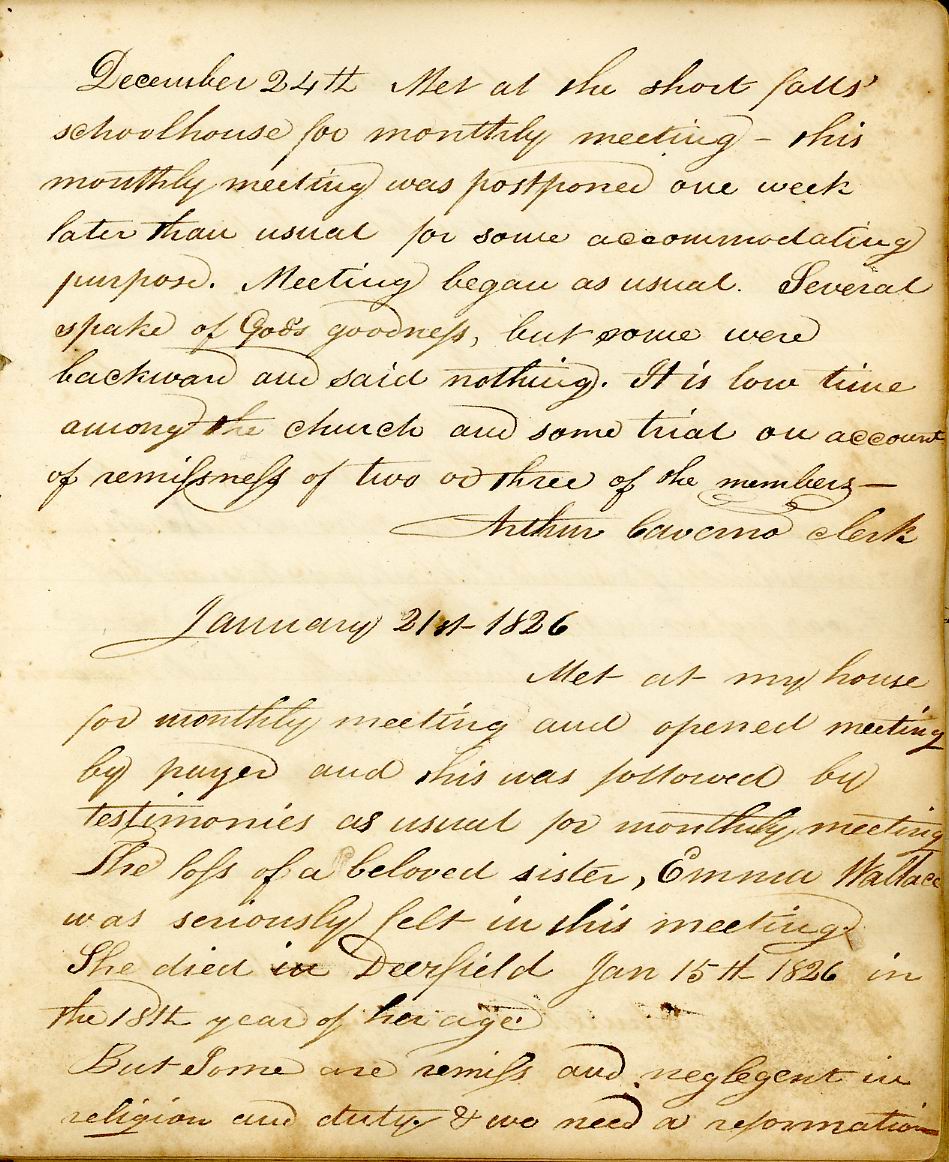 December 24th Met at the short falls'
schoolhouse for monthly meeting – this
monthly meeting was postponed one week
later than usual for some accommodating
purpose. Meeting began as usual. Several
spake of God's goodness, but some were
backward and said nothing. It is low time
among the church and some trial on account
of remissness of two or three of the members—
Arthur Caverno clerk
January 21st 1826
Met at my house
for monthly meeting and opened meeting
by prayer and this was followed by
testimonies as usual for monthly meeting
The loss of a beloved sister, Emma Wallace
was seriously felt in this meeting.
She died in Deerfield Jan 15th 1826 in
the 18th year of her age.
But Some are remiss and neglegent in
religion and duty. & we need a reformation